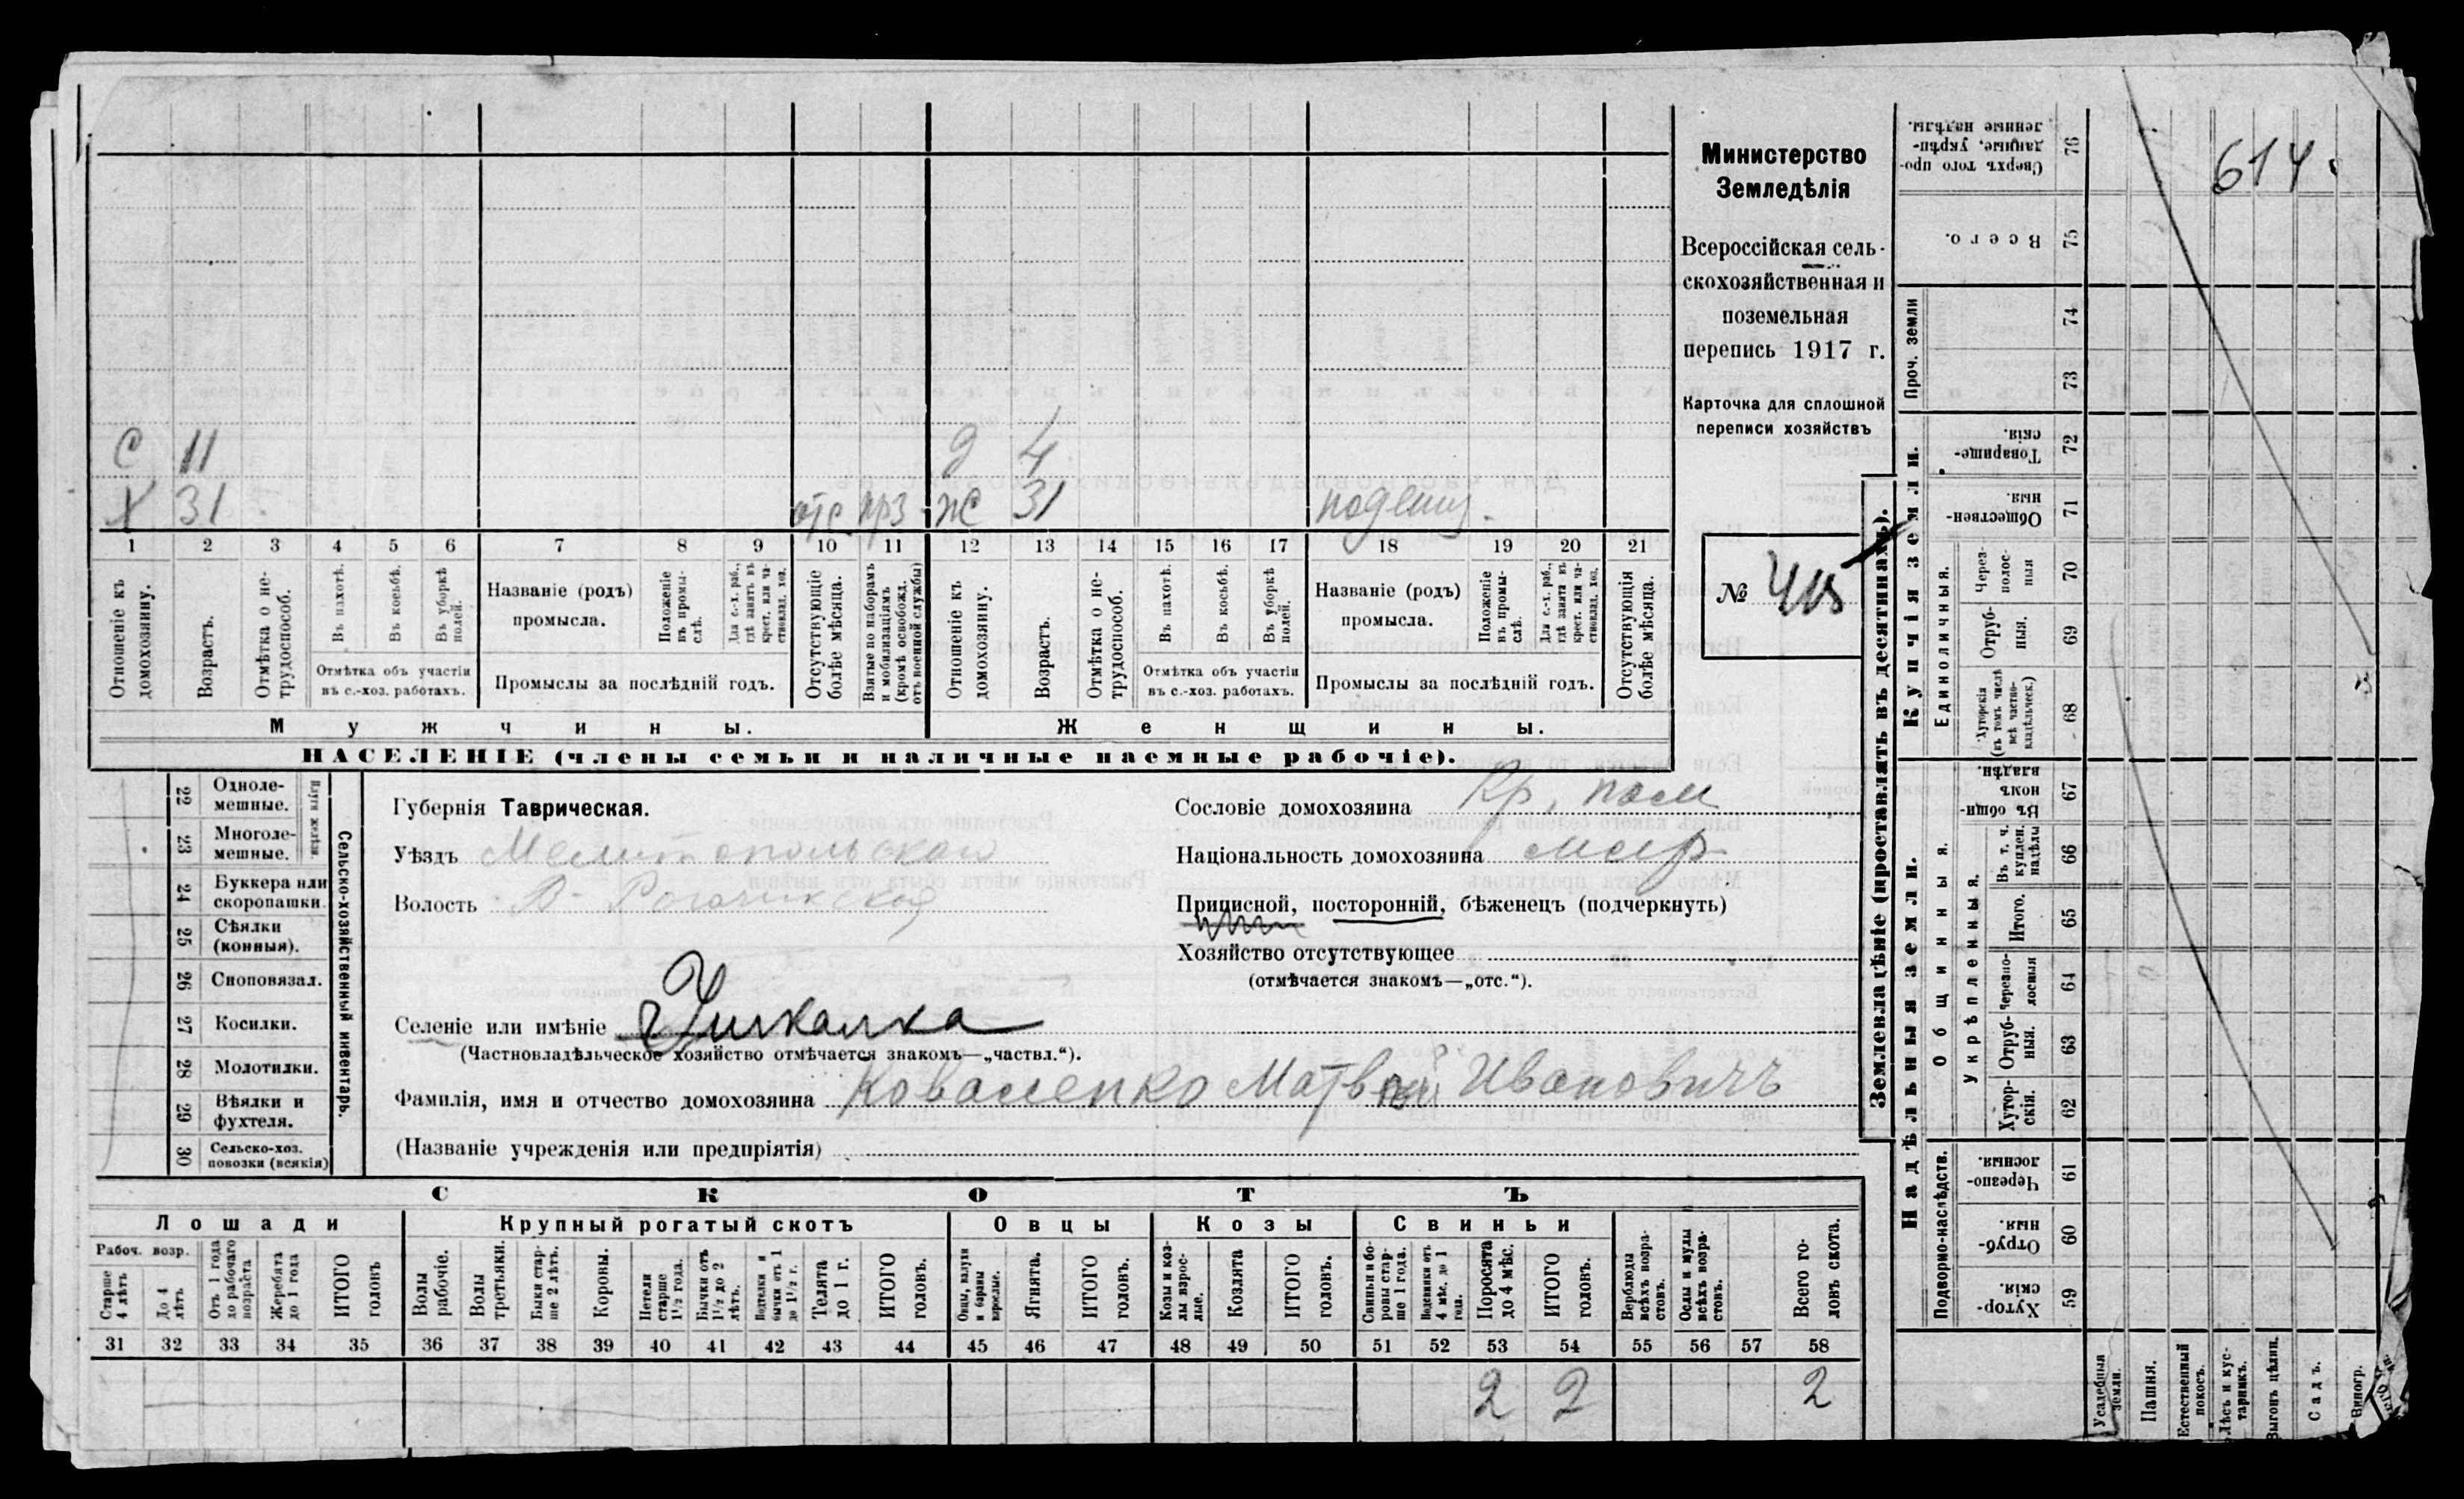 Министерство
Земледѣлія
Всероссійская сель-
скохозяйственная и
поземельная
перепись 1917 г.
Карточка для сплошной
переписи хозяйствъ
№ 415
614
С 11 д 4
Х 31 отс прз ж 31 поденщ.
1 2 3 4 5 6 7 8 9 10 11 12 13 14 15 16 17 18 19 20 21
Отношеніе къ домохозяину.
Возрастъ.
Отмѣтка о не-трудоспособ.
Въ пахотѣ.
Въ косьбѣ.
Въ уборкѣ полей.
Отмѣтка объ участіи
въ с.-хоз. работахъ.
Названіе (родъ)
промысла.
Положеніе въ промы-слѣ.
Для с.-х. раб., гдѣ занятъ въ крест. или ча-стновлад. хоз.
Промыслы за послѣдній годъ.
Отсутствующіе болѣе мѣсяца.
Взятые по наборамъ и мобилизаціямъ (кромѣ освобожд. отъ военной службы)
Отношеніе къ домохозяину.
Возрастъ.
Отмѣтка о не-трудоспособ.
Въ пахотѣ.
Въ косьбѣ.
Въ уборкѣ полей.
Отмѣтка объ участіи
въ с.-хоз. работахъ.
Названіе (родъ)
промысла.
Положеніе въ промы-слѣ.
Для с.-х. раб., гдѣ занята въ крест. или ча-стновлад. хоз.
Промыслы за послѣдній годъ.
Отсутствующія болѣе мѣсяца.
Мужчины.
Женщины.
НАСЕЛЕНІЕ (члены семьи и наличные наемные рабочіе).
Сельско-хозяйственный инвентарь.
Плуги желѣзн.
22 Однолемешные.
23 Многолемешные.
24 Буккера или скоропашки.
25 Сѣялки (конныя).
26 Сноповязал.
27 Косилки.
28 Молотилки.
29 Вѣялки и фухтеля.
30 Сельско-хоз. повозки (всякія)
Губернія Таврическая.
Уѣздъ Мелитопольскій
Волость В-Рогачикская
Селеніе или имѣніе Ушкалка
(Частновладѣльческое хозяйство отмѣчается знакомъ—„частвл.“).
Сословіе домохозяина Кр. пост
Національность домохозяина малор
Приписной, посторонній, бѣженецъ (подчеркнуть)
Хозяйство отсутствующее
(отмѣчается знакомъ—„отс.“).
Фамилія, имя и отчество домохозяина Коваленко Матвѣй Ивановичъ
(Названіе учрежденія или предпріятія)
СКОТЪ
Лошади
Крупный рогатый скотъ
Овцы
Козы
Свиньи
Рабоч. возр.
Старше 4 лѣтъ
До 4 лѣтъ
Отъ 1 года до рабочаго возраста
Жеребята до 1 года
ИТОГО головъ
Волы рабочіе.
Волы третьяки.
Быки стар-ше 2 лѣтъ.
Коровы.
Нетели старше 1½ года.
Бычки отъ 1½ до 2 лѣтъ.
Подтелки и бычки отъ 1 до 1½ г.
Телята до 1 г.
ИТОГО головъ.
Овцы, валухи и бараны взрослые.
Ягнята.
ИТОГО головъ.
Козы и коз-лы взрос-лые.
Козлята
ИТОГО головъ.
Свиньи и бо-ровы стар-ше 1 года.
Подсвинки отъ 4 мѣс. до 1 года.
Поросята до 4 мѣс.
ИТОГО головъ.
Верблюды всѣхъ возра-стовъ.
Ослы и мулы всѣхъ возра-стовъ.
Всего го-ловъ скота.
31 32 33 34 35 36 37 38 39 40 41 42 43 44 45 46 47 48 49 50 51 52 53 54 55 56 57 58
2 2 2
Землевладѣніе (проставлять въ десятинахъ).
Купчія земли.
Надѣльныя земли.
Проч. земли
Единоличныя.
Общинныя.
Укрѣпленныя.
Подворно-наслѣдств.
76 Сверхъ того про-данные, укрѣп-ленные надѣлы.
75 Всего.
74
73
72 Товарище-скія.
71 Обществен-ныя.
70 Через-полос-ныя
69 Отруб-ныя.
68 Хуторскія (въ томъ числѣ всѣ частно-владѣльческ.)
67 Въ общи-номъ владѣн.
66 Въ т. ч. куплен. надѣлы
65 Итого.
64 Черезпо-лосныя
63 Отруб-ныя.
62 Хутор-скія.
61 Черезпо-лосныя.
60 Отруб-ныя.
59 Хутор-скія.
Усадебныя земли.
Пашня.
Естественный покосъ.
Лѣсъ и кус-тарникъ.
Выгонъ цѣлин.
Садъ.
Виногр.